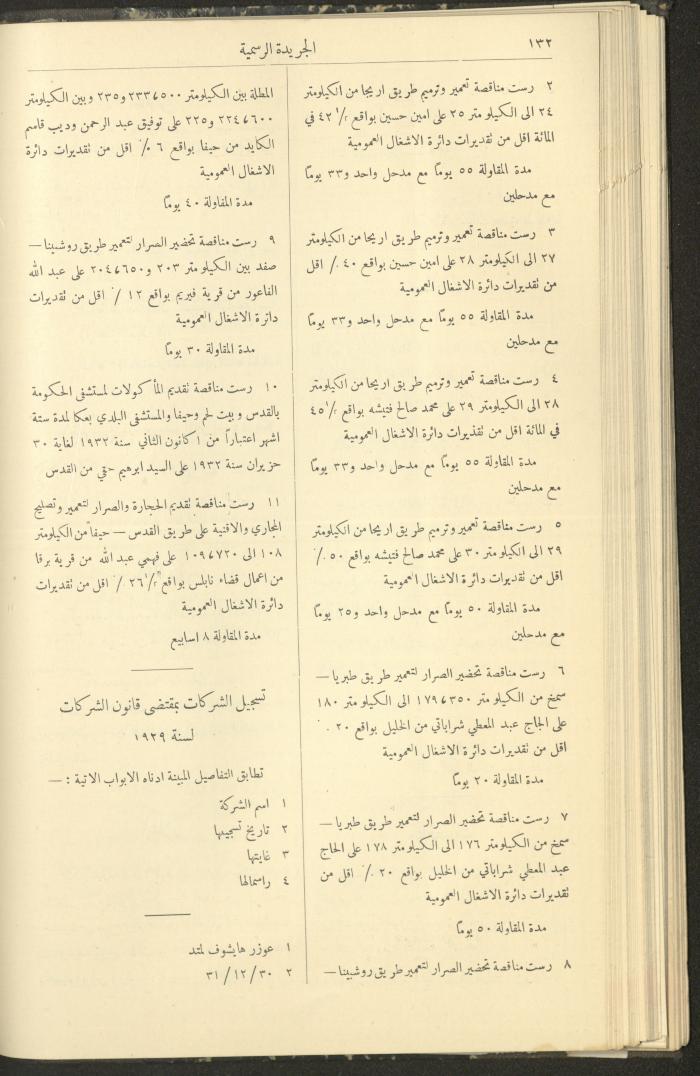 ١٣٢
الجريدة الرسمية
٢ رست مناقصة تعمير وترميم طريق اريحا من الكيلومتر
٢٤ الى الكيلو متر ٢٥ على امين حسين بواقع ١/٢ ٤٢ في
المائة اقل من تقديرات دائرة الاشغال العمومية
مدة المقاولة ٥٥ يوماً مع مدحل واحد و٣٣ يوماً
مع مدحلين
٣ رست مناقصة تعمير وترميم طريق اريحا من الكيلومتر
٢٧ الى الكيلومتر ٢٨ على امين حسين بواقع ٤٠ ٪ اقل
من تقديرات دائرة الاشغال العمومية
مدة المقاولة ٥٥ يوماً مع مدحل واحد و٣٣ يوماً
مع مدحلين
٤ رست مناقصة تعمير وترميم طريق اريحا من الكيلومتر
٢٨ الى الكيلومتر ٢٩ على محمد صالح فتيشه بواقع ١/٢ ٤٥
في المائة اقل من تقديرات دائرة الاشغال العمومية
مدة المقاولة ٥٥ يوماً مع مدحل واحد و٣٣ يوماً
مع مدحلين
٥ رست مناقصة تعمير وترميم طريق اريحا من الكيلومتر
٢٩ الى الكيلو متر ٣٠ على محمد صالح فتيشه بواقع ٥٠ ٪
اقل من تقديرات دائرة الاشغال العمومية
مدة المقاولة ٥٠ يوماً مع مدحل واحد و٢٥ يوماً
مع مدحلين
٦ رست مناقصة تحضير الصرار لتعمير طريق طبريا —
سمخ من الكيلو متر ١٧٩٧٣٥٠ الى الكيلو متر ١٨٠
على الحاج عبد المعطي شراباتي من الخليل بواقع ٢٠
اقل من تقديرات دائرة الاشغال العمومية
مدة المقاولة ٢٠ يوماً
٧ رست مناقصة تحضير الصرار لتعمير طريق طبريا —
سمخ من الكيلومتر ١٧٦ الى الكيلو متر ١٧٨ على الحاج
عبد المعطي شراباتي من الخليل بواقع ٢٠ ٪ اقل من
تقديرات دائرة الاشغال العمومية
مدة المقاولة ٥٠ يوماً
٨ رست مناقصة تحضير الصرار لتعمير طريق روشبينا —
المطلة بين الكيلومتر ٢٣٣٧٥٠٠ و٢٣٥ وبين الكيلومتر
٢٢٤٧٦٠٠ و٢٢٥ على توفيق عبد الرحمن وديب قاسم
الكايد من حيفا بواقع ٦ ٪ اقل من تقديرات دائرة
الاشغال العمومية
مدة المقاولة ٤٠ يوماً
٩ رست مناقصة تحضير الصرار لتعمير طريق روشبينا —
صفد بين الكيلو متر ٢٠٣ و٢٠٤٧٦٥٠ على عبد الله
الفاعور من قرية فيريم بواقع ١٢ ٪ اقل من تقديرات
دائرة الاشغال العمومية
مدة المقاولة ٣٠ يوماً
١٠ رست مناقصة تقديم المأكولات لمستشفى الحكومة
بالقدس وبيت لحم وحيفا والمستشفى البلدي بعكا لمدة ستة
اشهر اعتباراً من ١ كانون الثاني سنة ١٩٣٢ لغاية ٣٠
حزيران سنة ١٩٣٢ على السيد ابرهيم حقي من القدس
١١ رست مناقصة تقديم الحجارة والصرار لتعمير وتصليح
المجاري والاقنية على طريق القدس — حيفا من الكيلومتر
١٠٨ الى ١٠٩٧٧٢٠ على فهمي عبد الله من قرية برقا
من اعمال قضاء نابلس بواقع ١/٢ ٢٦ ٪ اقل من تقديرات
دائرة الاشغال العمومية
مدة المقاولة ٨ اسابيع
تسجيل الشركات بمقتضى قانون الشركات
لسنة ١٩٢٩
تطابق التفاصيل المبينة ادناه الابواب الاتية : —
١ اسم الشركة
٢ تاريخ تسجيلها
٣ غايتها
٤ راسمالها
١ عوزر هايشوف لمتد
٢ ٣١/١٢/٣٠